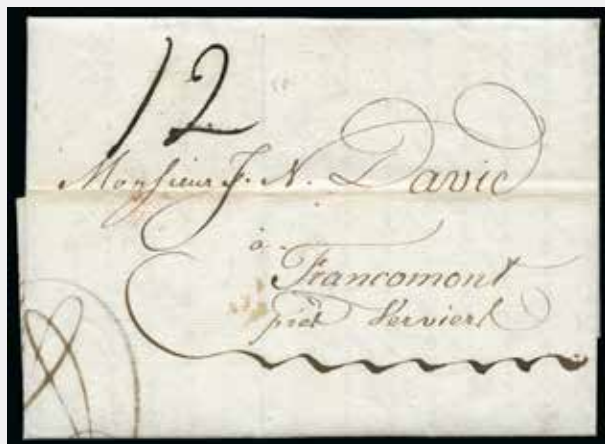 12
Monsieur J. N. David
à
Francomont
près Verviers